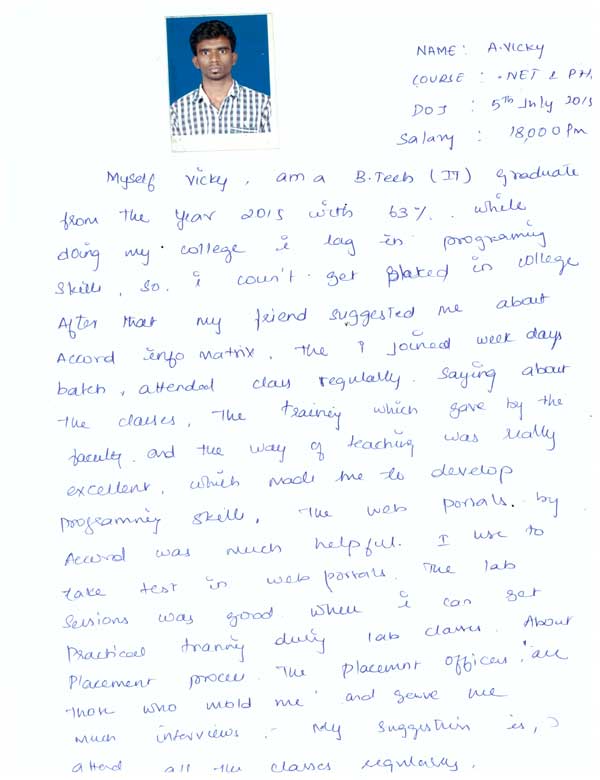 NAME : A.Vicky
COURSE : .NET & PH
DOJ : 5th July 2015
Salary : 18,000 Pm
Myself Vicky, am a B.Tech (IT) graduate
from the year 2015 with 63%. while
doing my college i lag in programing
skill, so. i coun't get placed in college
After that my friend suggested me about
Accord info matrix. The i Joined week days
batch, attended class regulally. Saying about
The classes, The training which gave by the
faculty and the way of teaching was really
excellent, which made me to develop
programming skill, The web portals. by
Accord was much helpful. I use to
take test in web portals. The lab
Sessions was good when i can get
practical traning duriy lab classes. About
Placement proces. The placement officer, are
Those who mold me and gave me
much interviews. My suggestion is,
attend all the classes regulally.